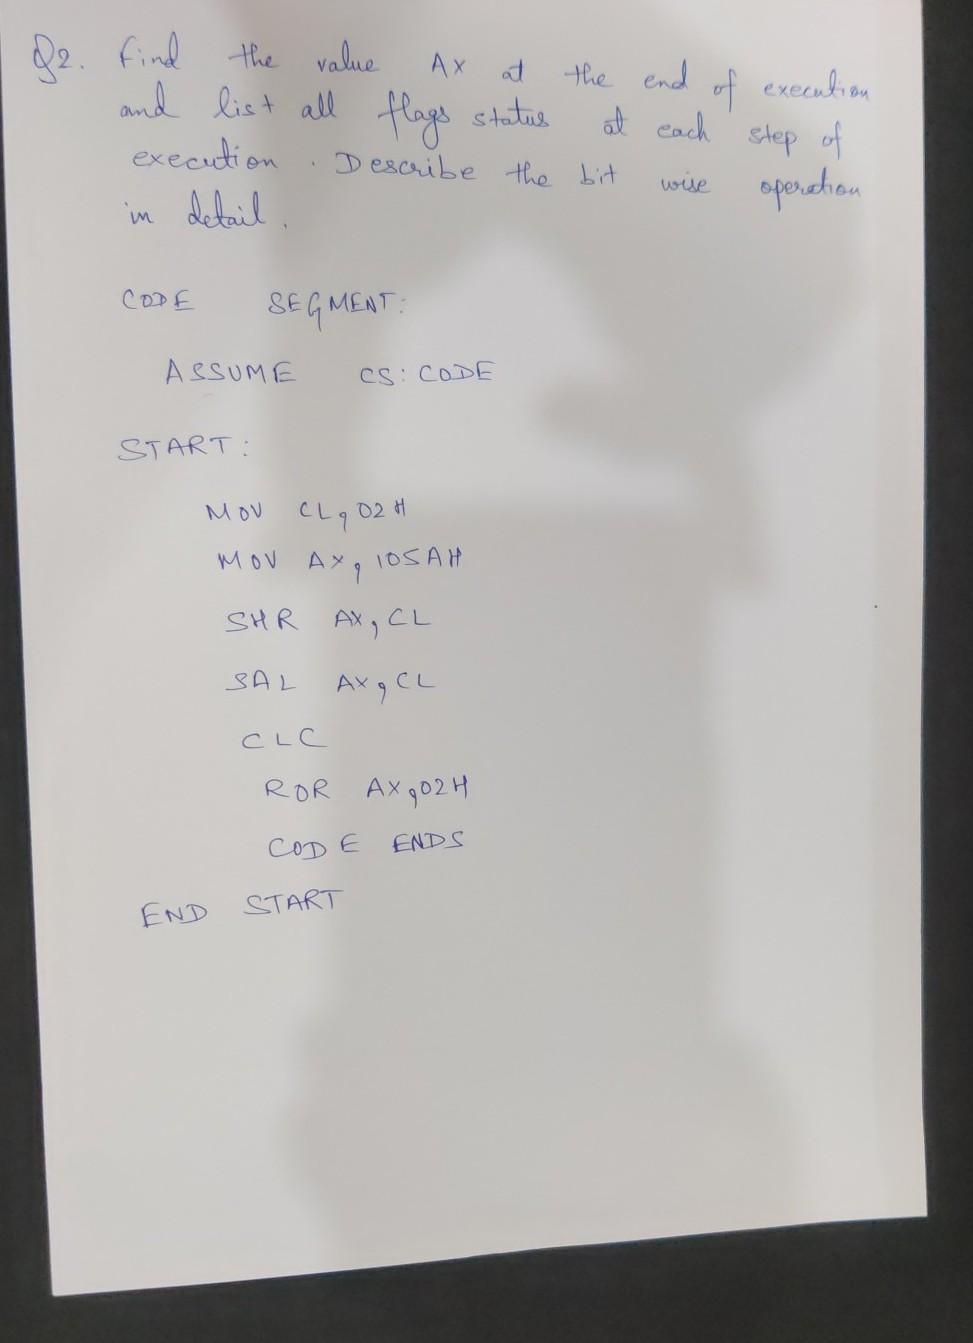 Q2. Find the value AX at the end of execution
and list all flags status at each step of
execution. Describe the bit wise operation
in detail.
CODE SEGMENT:
ASSUME CS: CODE
START:
MOV CL, 02H
MOV AX, 105AH
SHR AX, CL
SAL AX, CL
CLC
ROR AX, 02H
CODE ENDS
END START